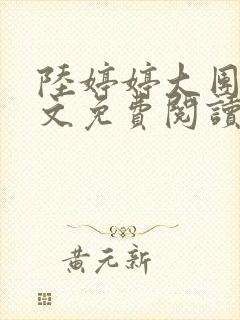 陸婷婷大團
文免費閱讀
黃元新